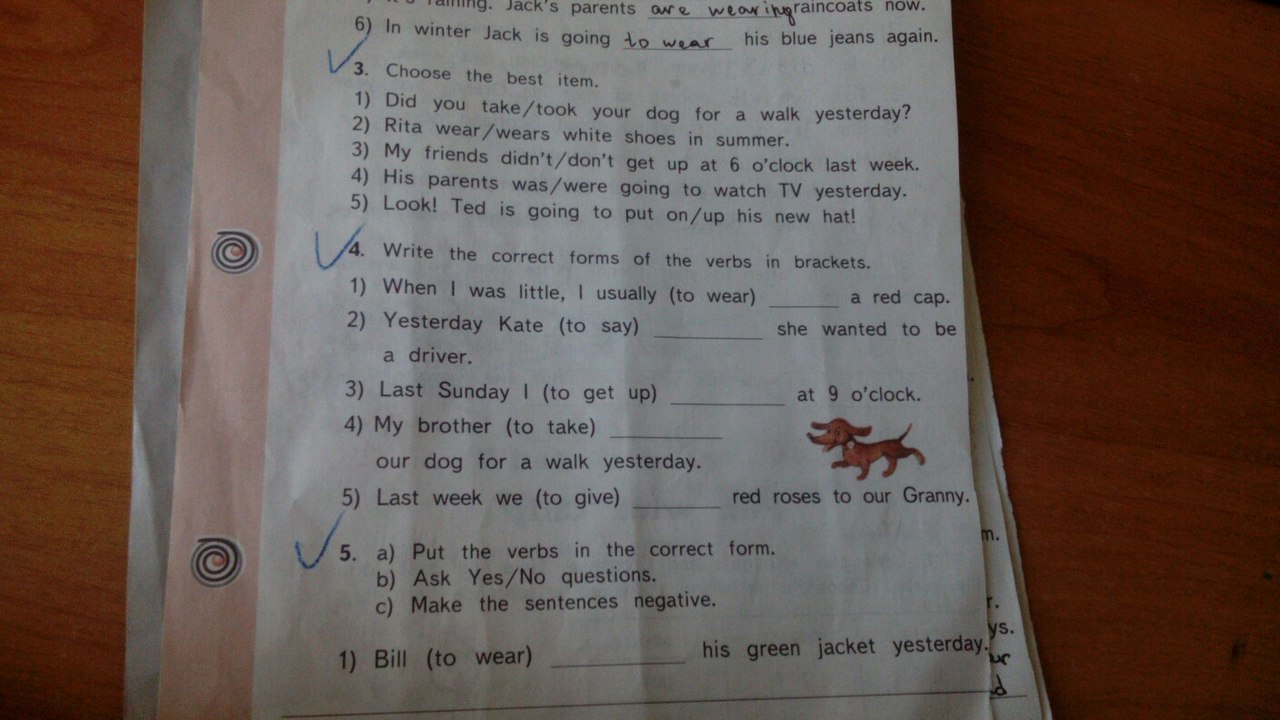 raining. Jack's parents are wearing raincoats now.
6) In winter Jack is going to wear his blue jeans again.
3. Choose the best item.
1) Did you take/took your dog for a walk yesterday?
2) Rita wear/wears white shoes in summer.
3) My friends didn't/don't get up at 6 o'clock last week.
4) His parents was/were going to watch TV yesterday.
5) Look! Ted is going to put on/up his new hat!
4. Write the correct forms of the verbs in brackets.
1) When I was little, I usually (to wear) ______ a red cap.
2) Yesterday Kate (to say) ______ she wanted to be
a driver.
3) Last Sunday I (to get up) ______ at 9 o'clock.
4) My brother (to take) ______
our dog for a walk yesterday.
5) Last week we (to give) ______ red roses to our Granny.
5. a) Put the verbs in the correct form.
b) Ask Yes/No questions.
c) Make the sentences negative.
1) Bill (to wear) ______ his green jacket yesterday.